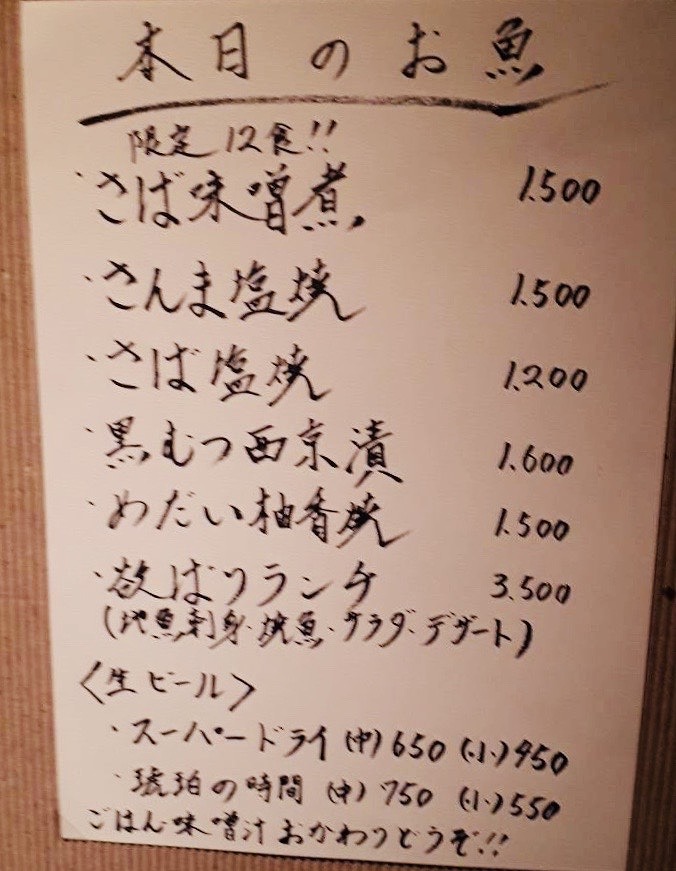 本日のお魚
限定12食!!
・さば味噌煮 1.500
・さんま塩焼 1.500
・さば塩焼 1.200
・黒むつ西京漬 1.600
・めだい柚香焼 1.500
・欲ばりランチ 3.500
(地魚刺身・焼魚・サラダ・デザート)
〈生ビール〉
・スーパードライ (中)650 (小)450
・琥珀の時間 (中)750 (小)550
ごはん・味噌汁おかわりどうぞ!!